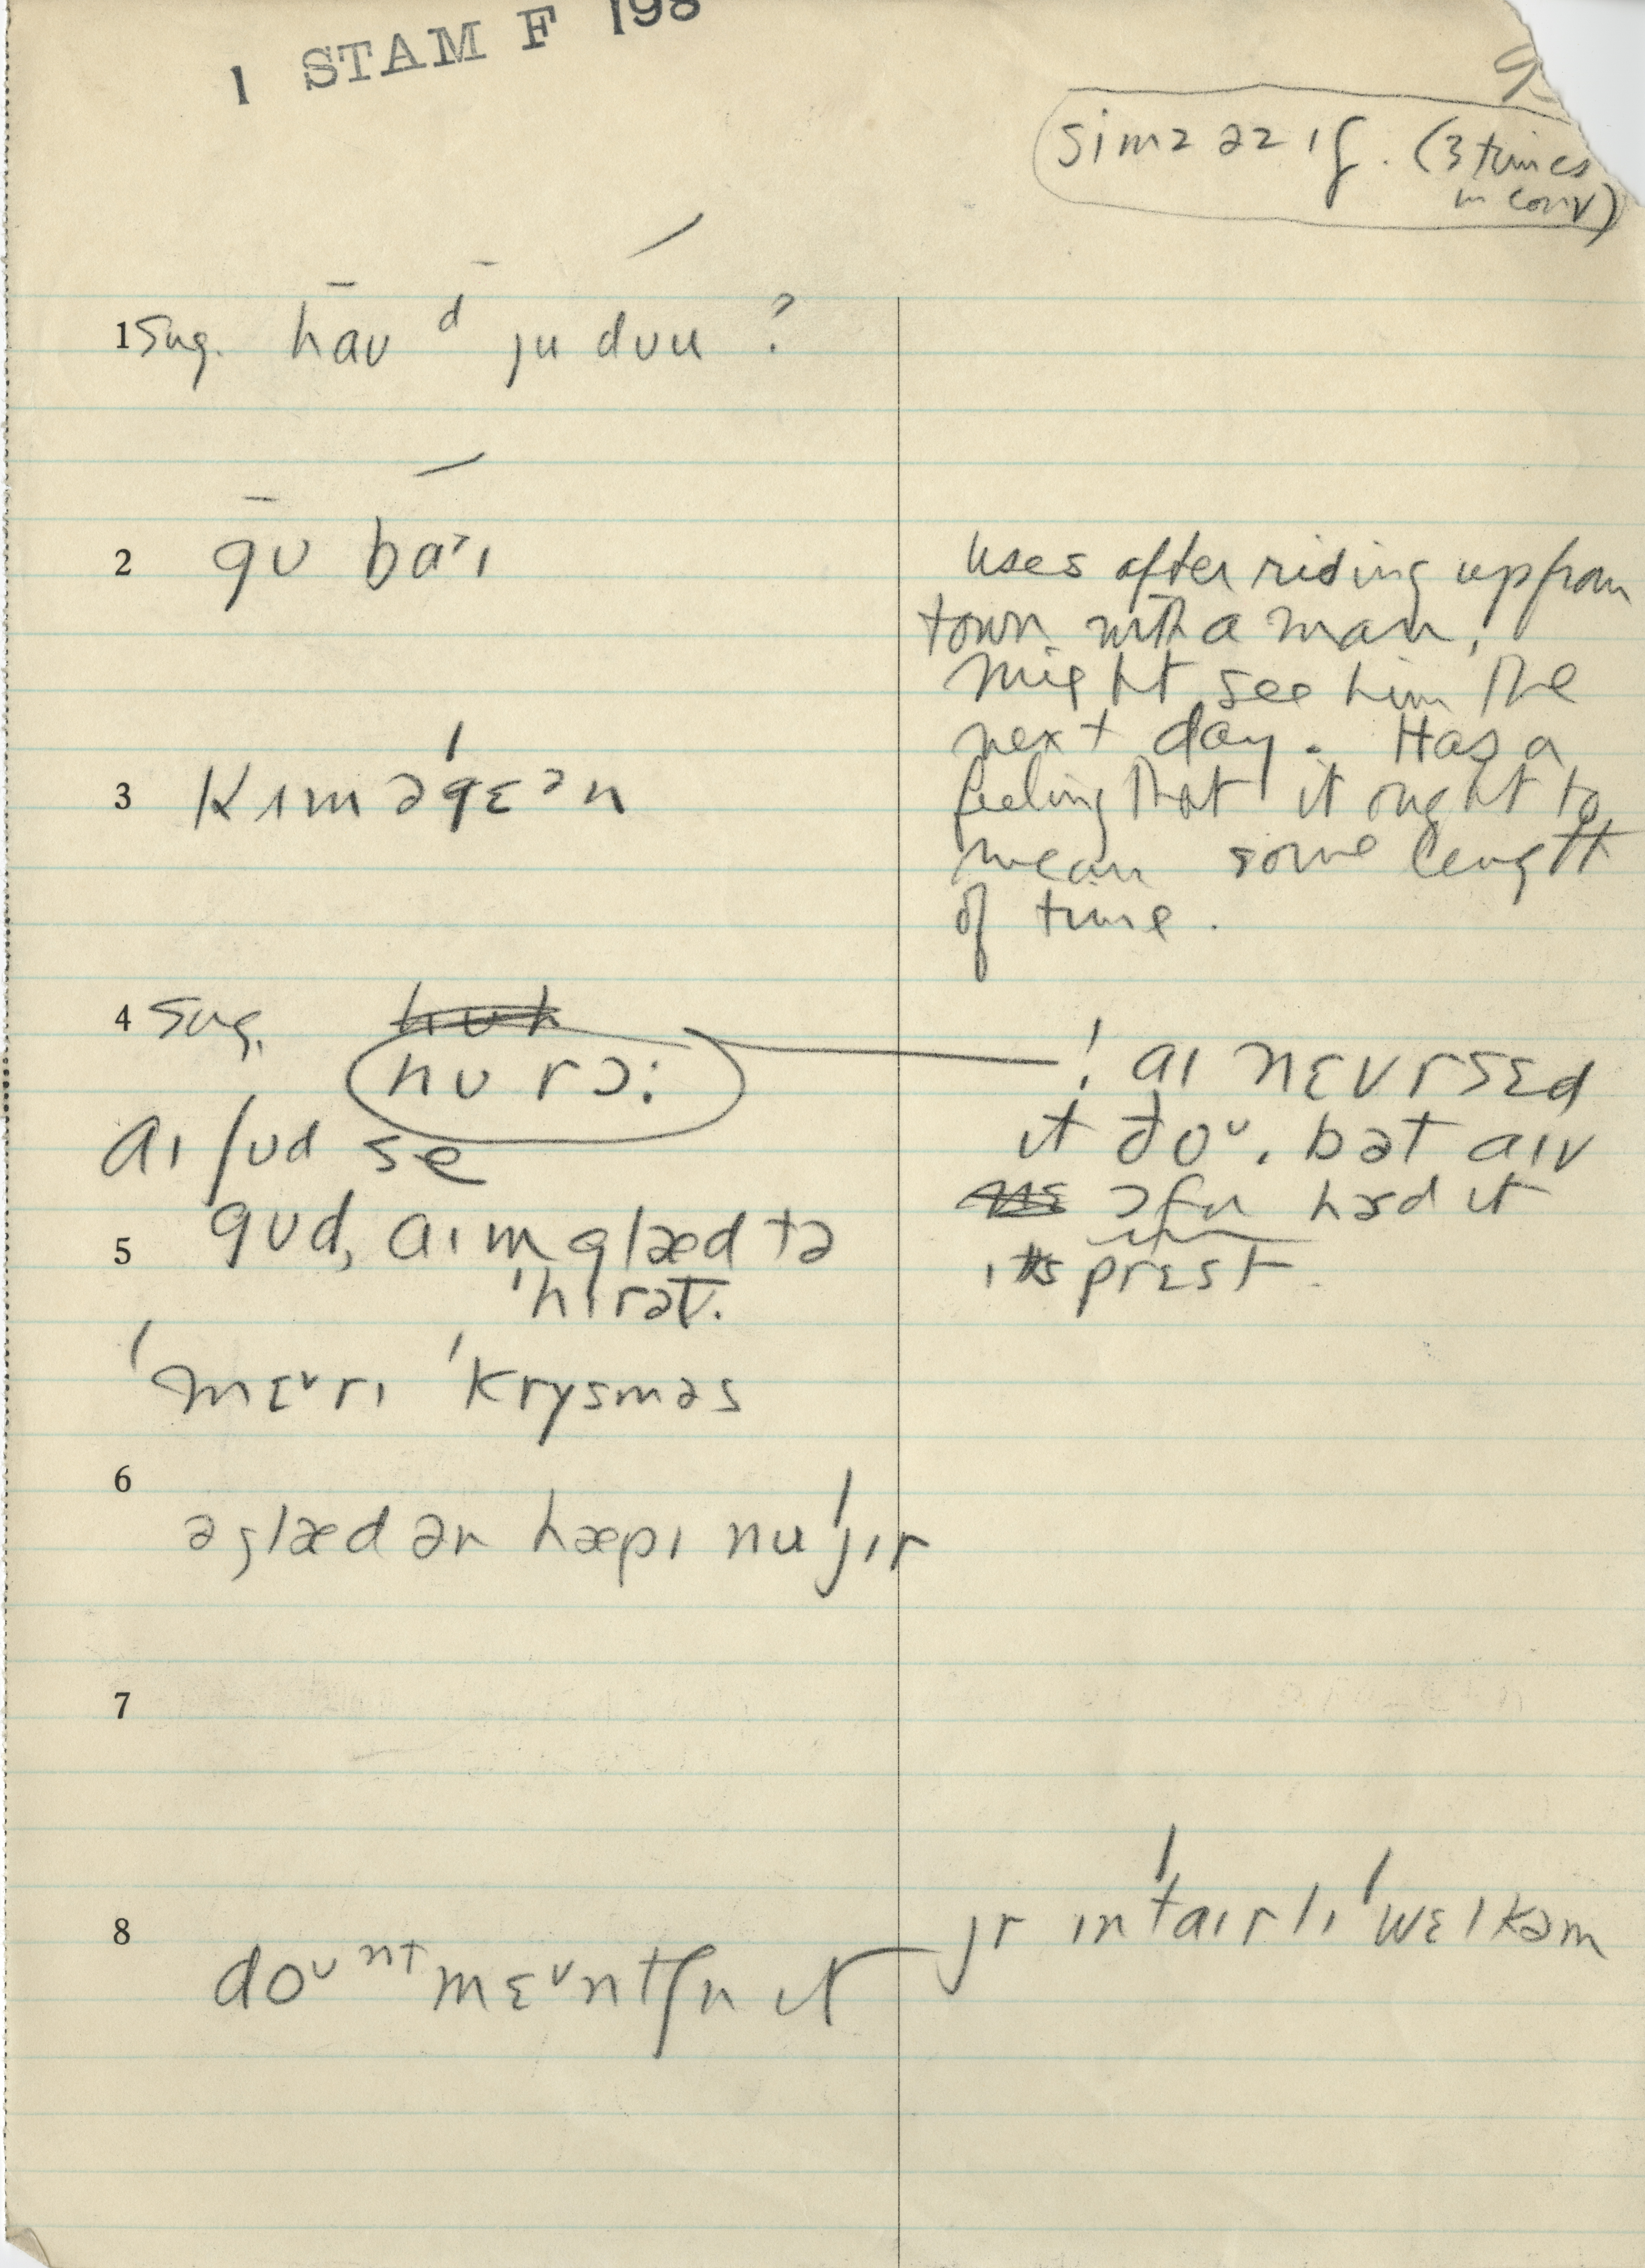 1 STAM F 198
simz əz ɪf. (3 times
in conv)
1 Sug. haʊ d ju dʊu ?
2 gʊ baˑɪ
uses after riding up from
town with a man,
might see him the
next day. Has a
feeling that it ought to
mean some length
of time.
3 kɪm əˈgɛᵊn
4 Sug. hʊh
hʊ rɔ:
! aɪ nɛvr sɛd
it ðoᵘ, bət aɪv
ɔfn hɜd it
ɪts prɛst
aɪ ʃʊd se
5 gʊd, aɪm glæd tə
ˈhɪrət.
ˈmɛᵛrɪ ˈkrysməs
6
ə glæd ər hæpɪ nuˈjɪr
7
8 doᵘⁿᵗ mɛᵛntʃn it jr ɪnˈtaɪrlɪ ˈwɛlkəm